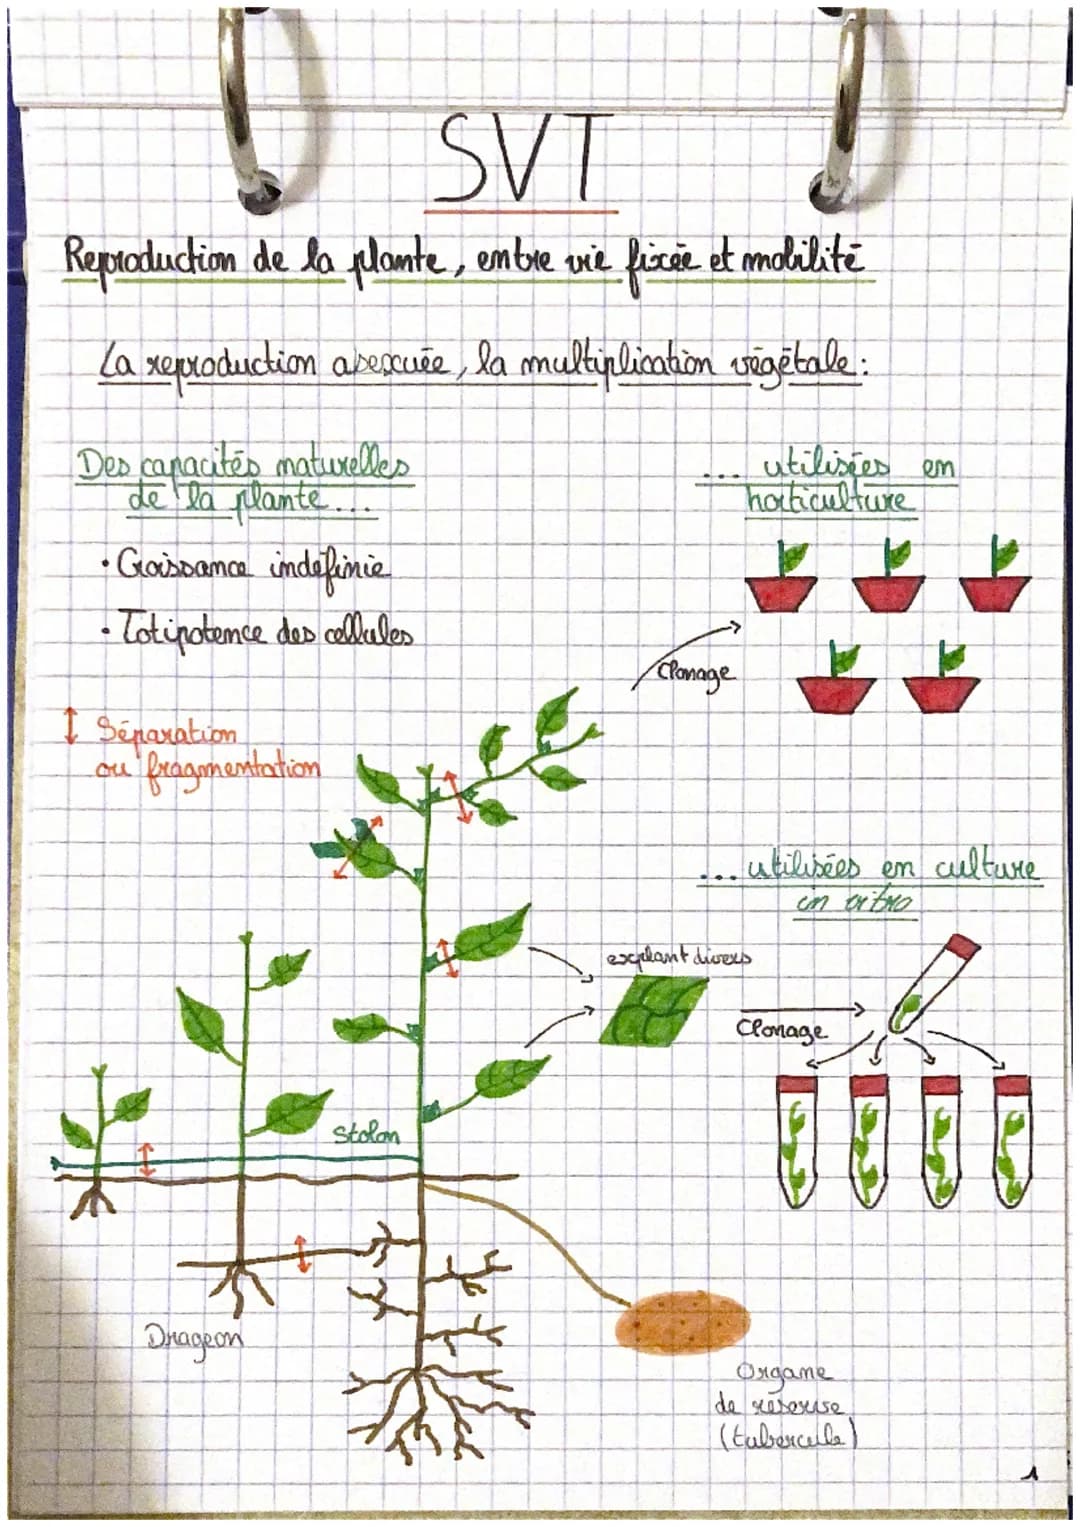 SVT
Reproduction de la plante, entre vie fixée et mobilité
La reproduction asexuée, la multiplication végétale :
Des capacités naturelles
de la plante...
... utilisées en
horticulture
• Croissance indéfinie
• Totipotence des cellules
Clonage
Séparation
ou fragmentation
... utilisées en culture
in vitro
explant divers
Clonage
Stolon
Drageon
Organe
de réserve
(tubercule)
1